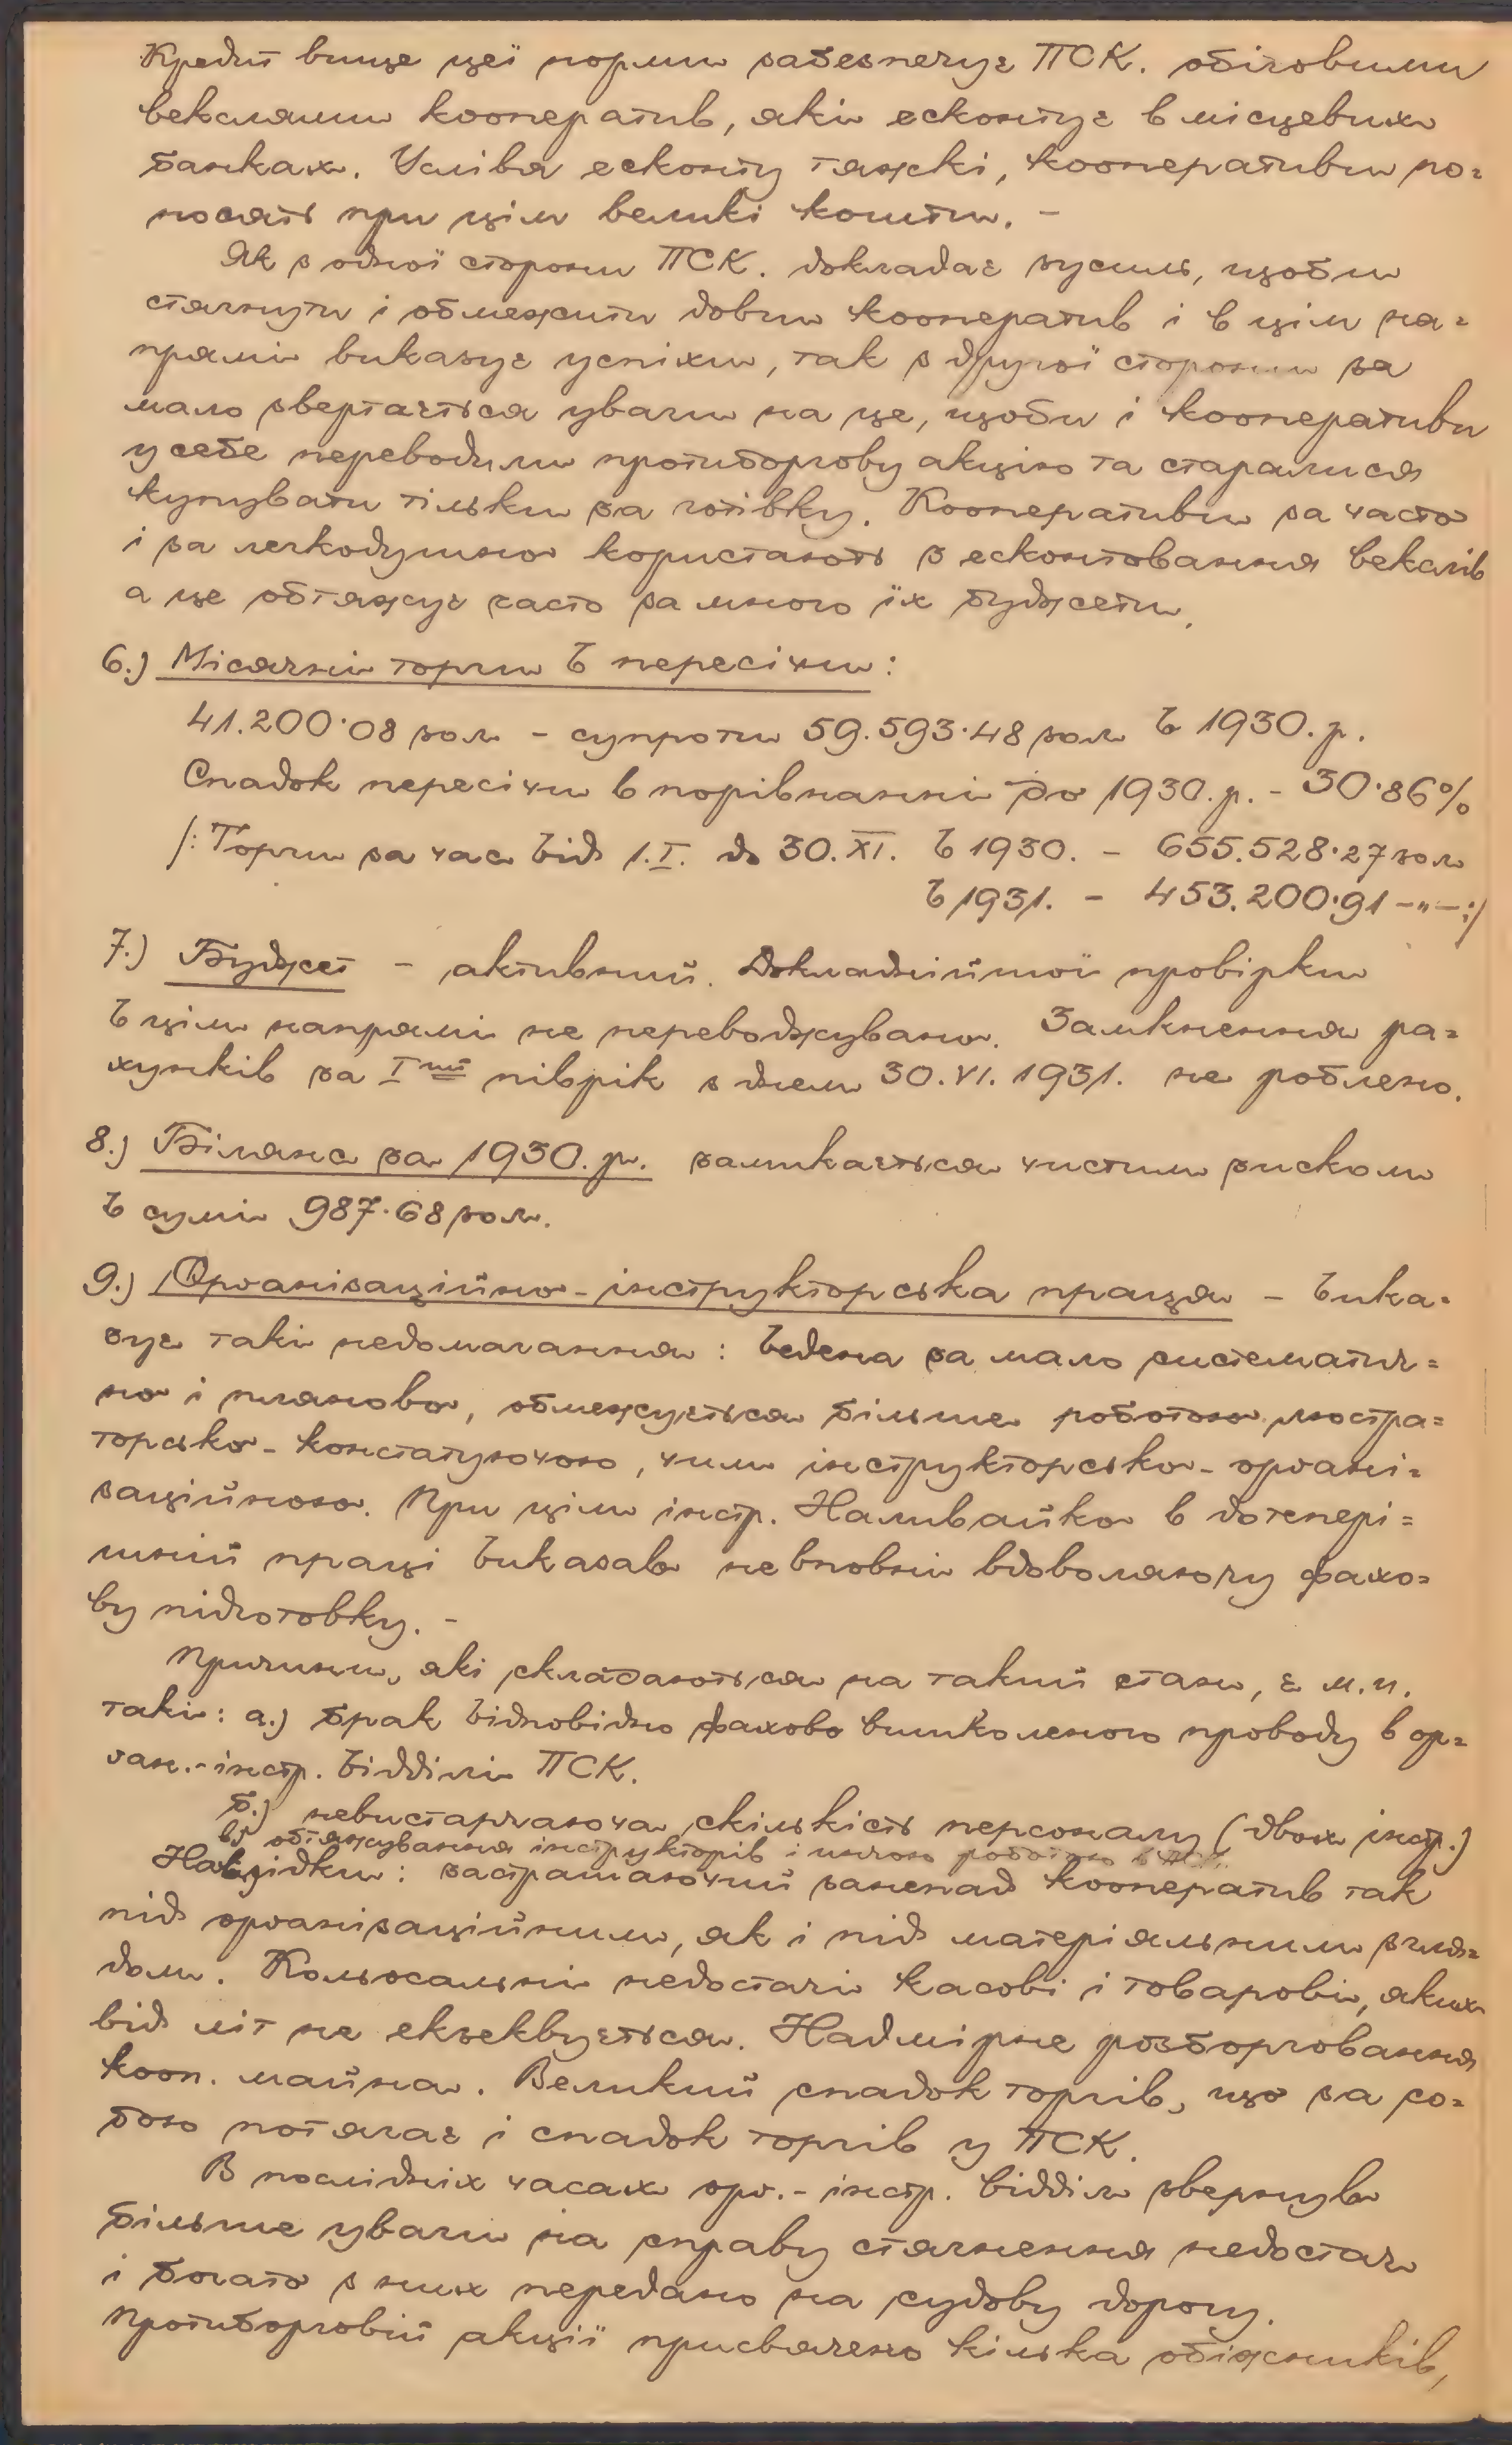 Кредит вище цеї норми забезпечує ПСК. обіговими
векслями кооператив, які есконтує в місцевих
банках. Услівя есконту тяжкі, кооперативи по=
носять при цім великі кошти. –
Як з одної сторони ПСК. докладає зусиль, щоби
стягнути і обмежити довги кооператив і в цім на=
прямі виказує успіхи, так з другої сторони за
мало звертається уваги на це, щоби і кооперативи
у себе переводили протиборгову акцію та старалися
купувати тільки за готівку. Кооперативи за часто
і за легкодушно користають з есконтовання векслів
а це обтяжує часто за много їх буджети.
6.) Місячні торги в пересічи:
41.200·08 зол. – супроти 59.593·48 зол. в 1930. р.
Спадок пересічи в порівнанні до 1930. р. – 30·86%
/: Торги за час від 1.I. до 30.XI. в 1930. – 655.528·27 зол
в 1931. – 453.200·91 –„– :/
7.) Буджет – активний. Докладнійшої провірки
в цім напрямі не переводжувано. Замкнення ра=
хунків за I ший піврік з днем 30.VI.1931. не роблено.
8.) Біляна за 1930. р. замикається чистим зиском
в сумі 987·68 зол.
9.) Орґанізаційно-інструкторська праця – вика=
зує такі недомагання: ведена за мало систематич=
но і пляново, обмежується більше роботою люстра=
торсько-констатуючою, чим інструкторсько-орґані=
заційною. При цім інстр. Наливайко в дотепері=
шній праці виказав невповні вдоволяючу фахо=
ву підготовку. –
Причини, які складаються на такий стан, є м.и.
такі: а.) брак відповідно фахово вишколеного проводу в ор=
ґан.-інстр. відділі ПСК.
б.) невистарчаюча скількість персоналу (двох інстр.)
в) обтяжування інструкторів і иншою роботою в ПСК.
Навідки: застрашаючий занепад кооператив так
під орґанізаційним, як і під матеріяльним згля=
дом. Кольосальні недостачі касові і товарові, яких
від літ не екзеквується. Надмірне розборговання
кооп. майна. Великий спадок торгів, що за со=
бою потягає і спадок торгів у ПСК.
В послідніх часах орґ.-інстр. відділ звернув
більше уваги на справу стягнення недостач
і богато з них передано на судову дорогу.
Протиборговій акції присвячено кілька обіжників,